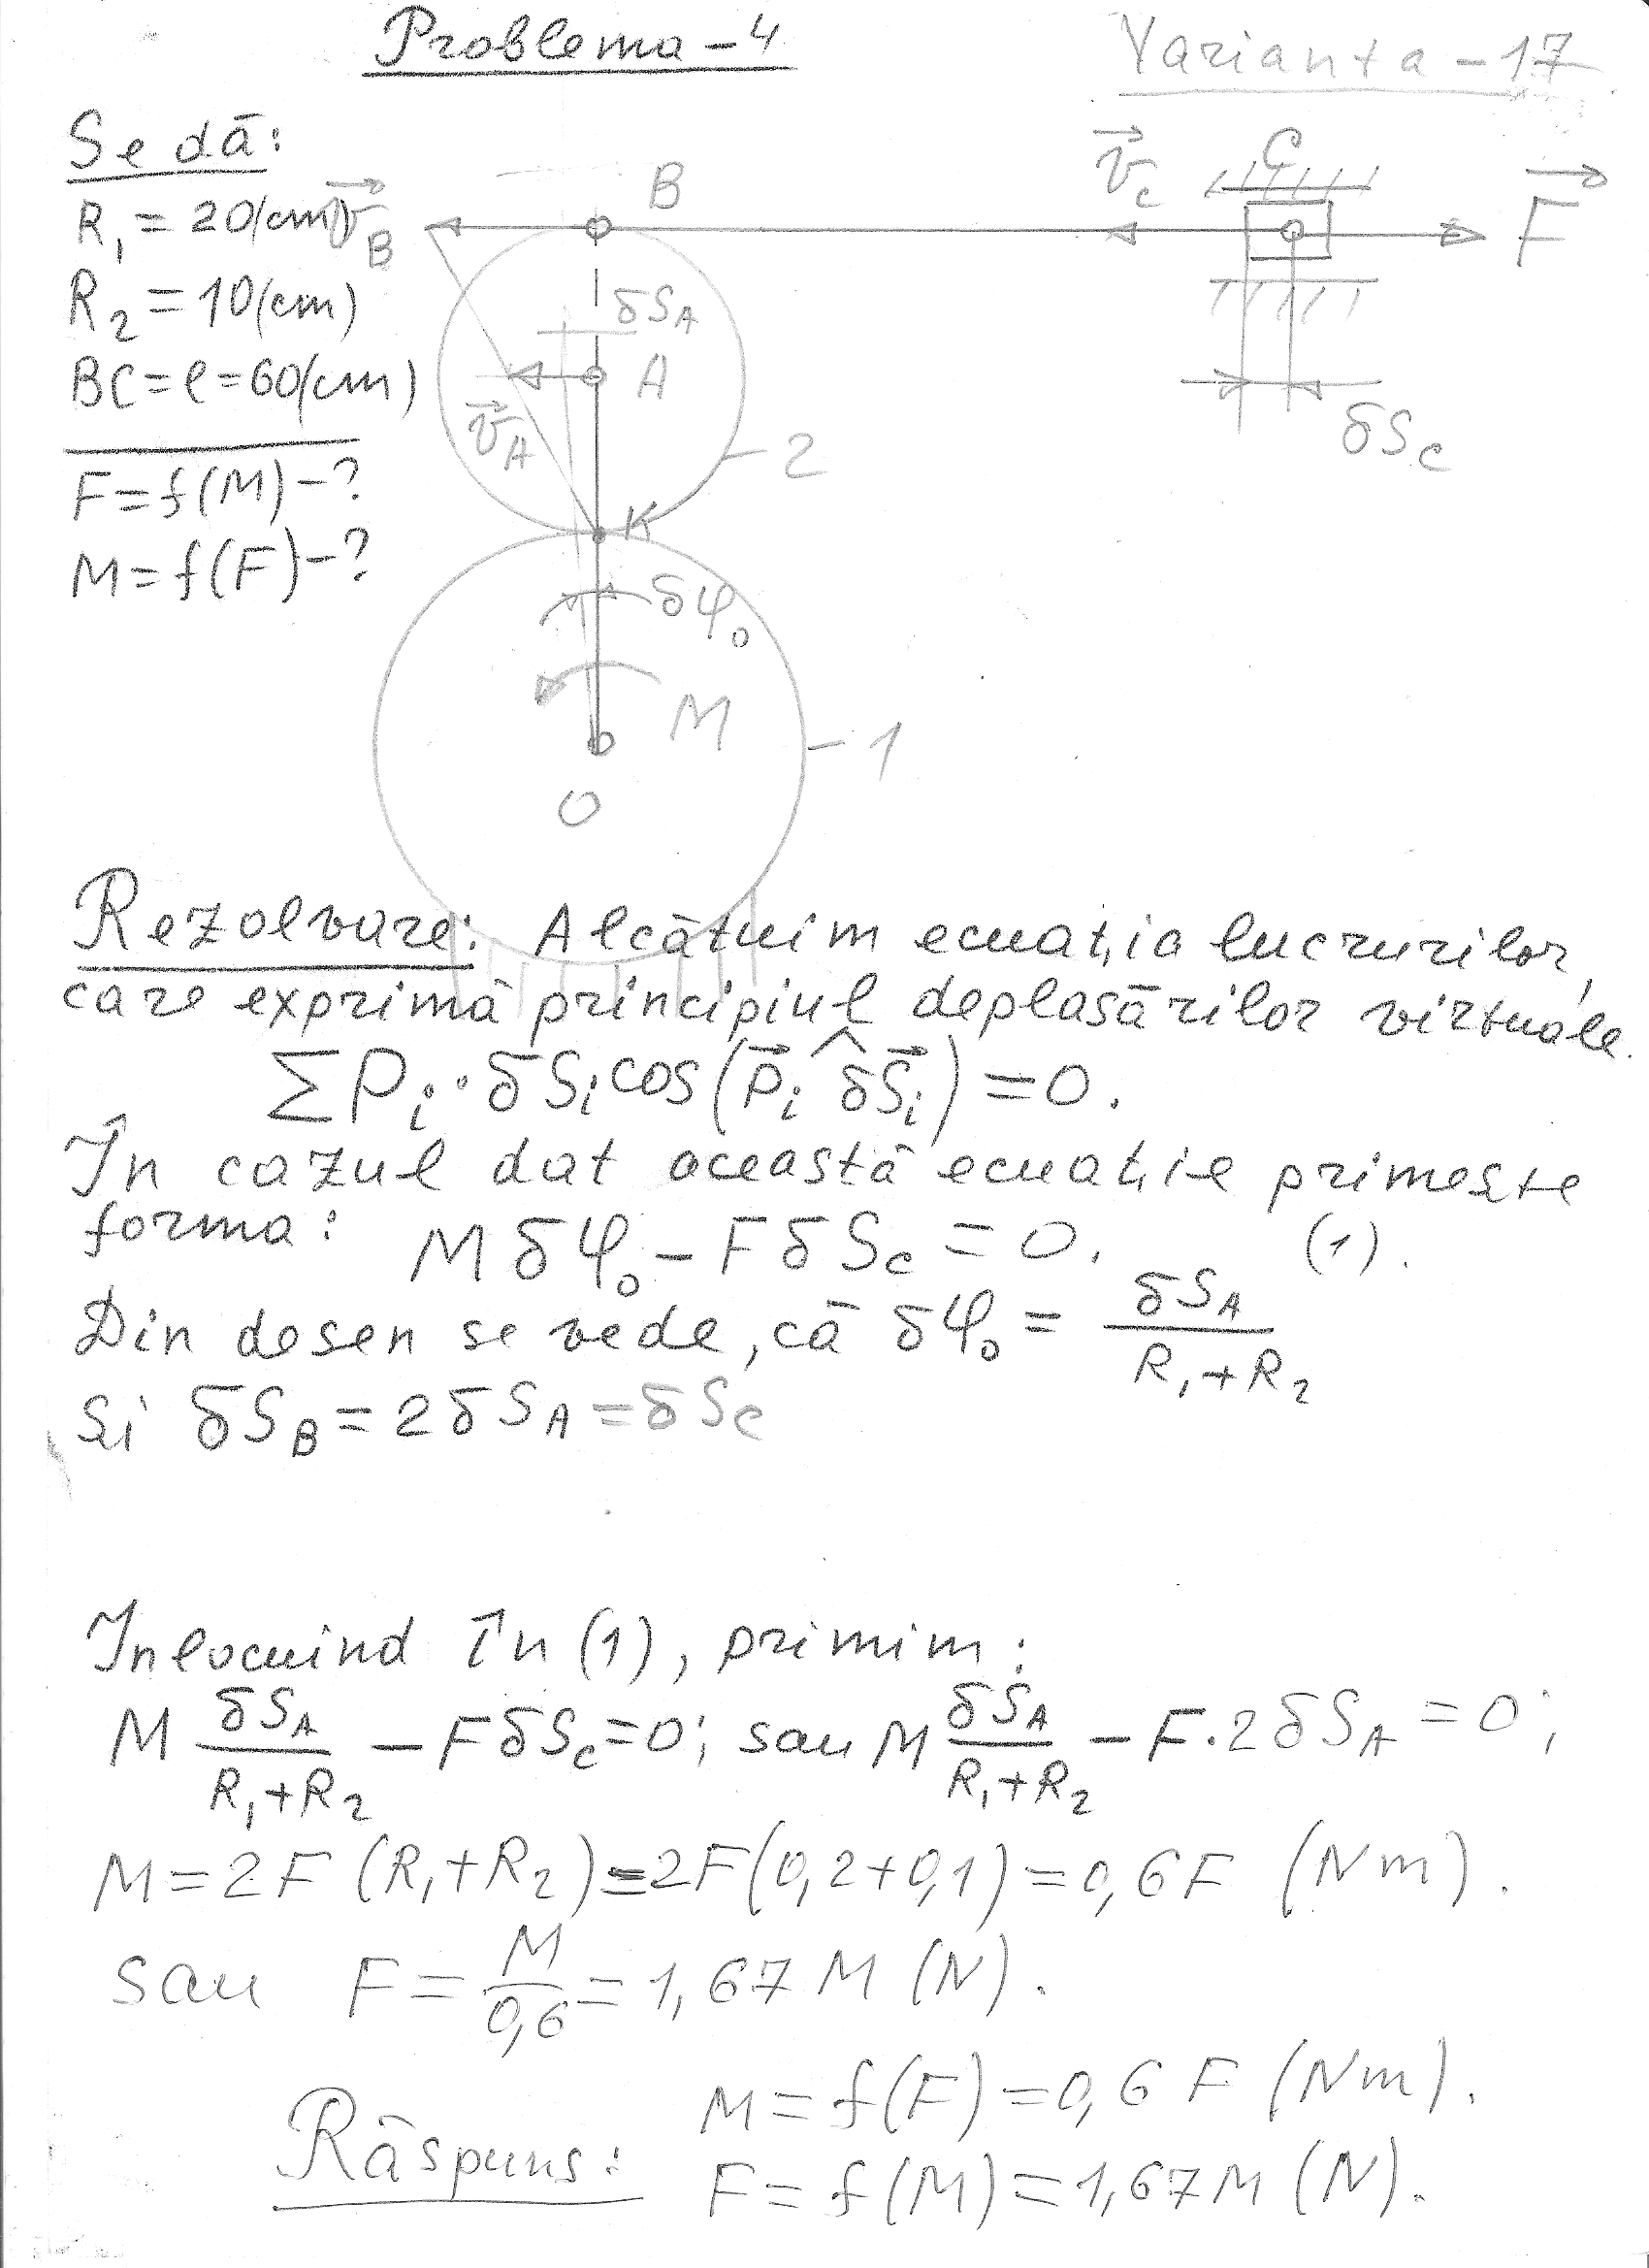 Problema-4
Varianta-17
Se dă:
R₁ = 20(cm)
R₂ = 10(cm)
BC = l = 60(cm)
F = f(M) - ?
M = f(F) - ?
v⃗_B
B
v⃗_C
C
F⃗
δS_A
A
v⃗_A
2
δS_C
K
δφ₀
M
1
O
Rezolvare: Alcătuim ecuația lucrurilor,
care exprimă principiul deplasărilor virtuale.
ΣPᵢ·δSᵢcos(P⃗ᵢ^δS⃗ᵢ) = 0.
În cazul dat această ecuație primește
forma: Mδφ₀ - FδS_C = 0. (1).
Din desen se vede, că δφ₀ = δS_A/(R₁+R₂)
și δS_B = 2δS_A = δS_C
Inlocuind în (1), primim:
M δS_A/(R₁+R₂) - FδS_C = 0; sau M δS_A/(R₁+R₂) - F·2δS_A = 0;
M = 2F(R₁+R₂) = 2F(0,2+0,1) = 0,6F (Nm).
sau F = M/0,6 = 1,67M (N).
Răspuns: M = f(F) = 0,6F (Nm).
F = f(M) = 1,67M (N).